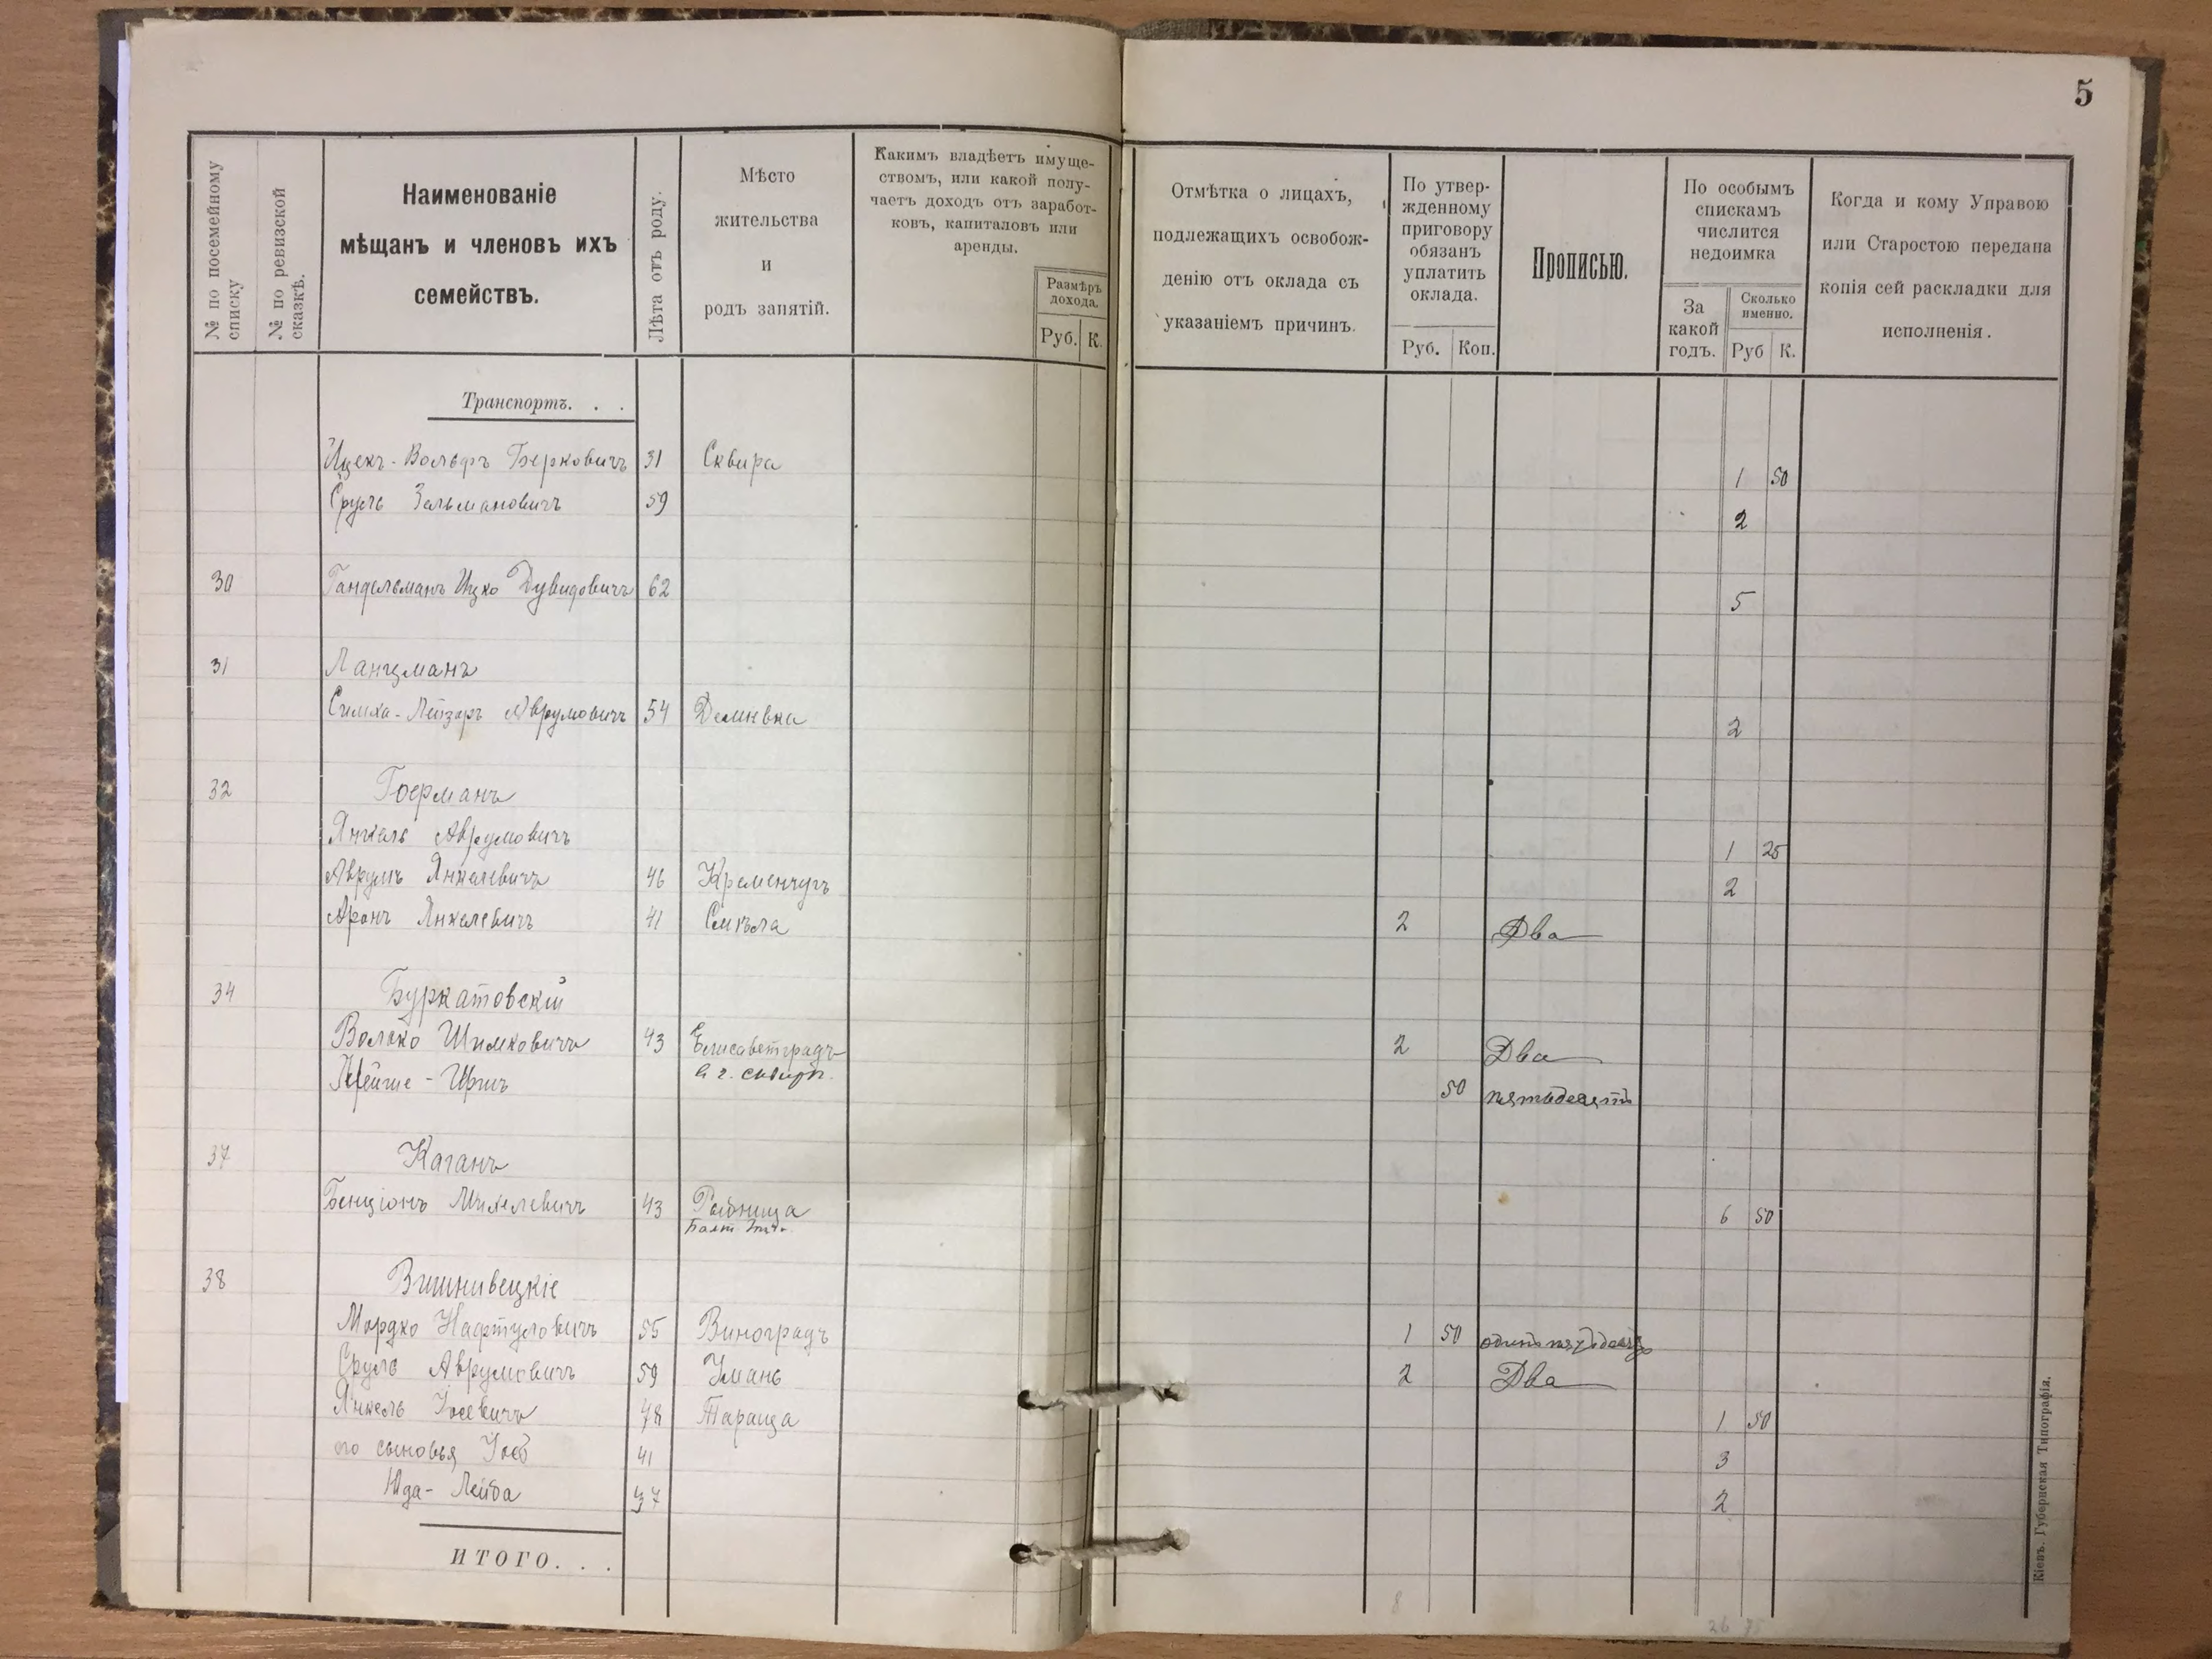 5
№ по посемейному списку
№ по ревизской сказкѣ.
Наименованіе
мѣщанъ и членовъ ихъ
семействъ.
Лѣта отъ роду.
Мѣсто
жительства
и
родъ запятій.
Какимъ владѣетъ имуще-
ствомъ, или какой полу-
чаетъ доходъ отъ заработ-
ковъ, капиталовъ или
аренды.
Размѣръ
дохода.
Руб. К.
Отмѣтка о лицахъ,
подлежащихъ освобож-
денію отъ оклада съ
указаніемъ причинъ.
По утвер-
жденному
приговору
обязанъ
уплатить
оклада.
Руб. Коп.
Прописью.
По особымъ
спискамъ
числится
недоимка
За
какой
годъ.
Сколько
именно.
Руб К.
Когда и кому Управою
или Старостою передана
копія сей раскладки для
исполненія.
Транспортъ. . .
Ицекъ-Вольфъ Берковичъ 31 Сквира 1 50
Сруль Зельмановичъ 59 2
30 Гандельманъ Ицко Дувидовичъ 62 5
31 Лангманъ
Симха-Лейзоръ Аврумовичъ 54 Демквка 2
32 Гоерманъ
Янкель Аврумовичъ 1 25
Аврумъ Янкелевичъ 46 Кременчугъ 2
Аронъ Янкелевичъ 41 Смѣла 2 Два
34 Буркатовскій
Волько Шимковичъ 43 Елисаветградъ 2 Два
-Иршъ в г. Сквирѣ. 50 пятьдесятъ
37 Каганъ
Бенціонъ Михелевичъ 43 Рыбница 6 50
Балт.
38 Вишнивецкіе
Мордко Нафтуловичъ 55 Виноградъ 1 50 одинъ пятьдесятъ
Сруль Аврумовичъ 59 Умань 2 Два
Янкель Іосевичъ 78 Тараща 1 50
его сыновья Іось 41 3
Юда-Лейба 37 2
ИТОГО. . .
8 26 75
Кіевъ. Губернская Типографія.